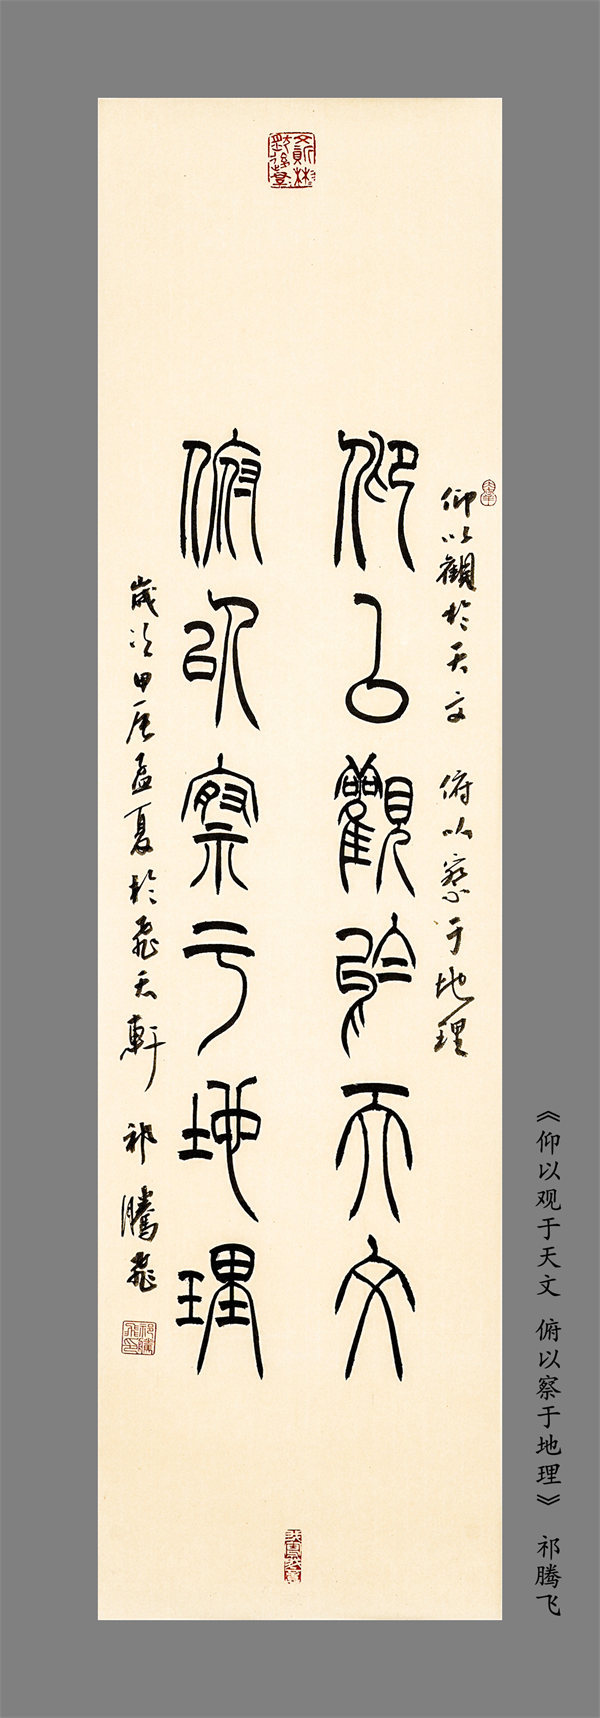 仰以觀於天文 俯以察于地理
仰㠯觀於天文
俯以察亏地理
歲次甲辰孟夏於飛天軒 祁騰飛
《仰以观于天文 俯以察于地理》 祁腾飞